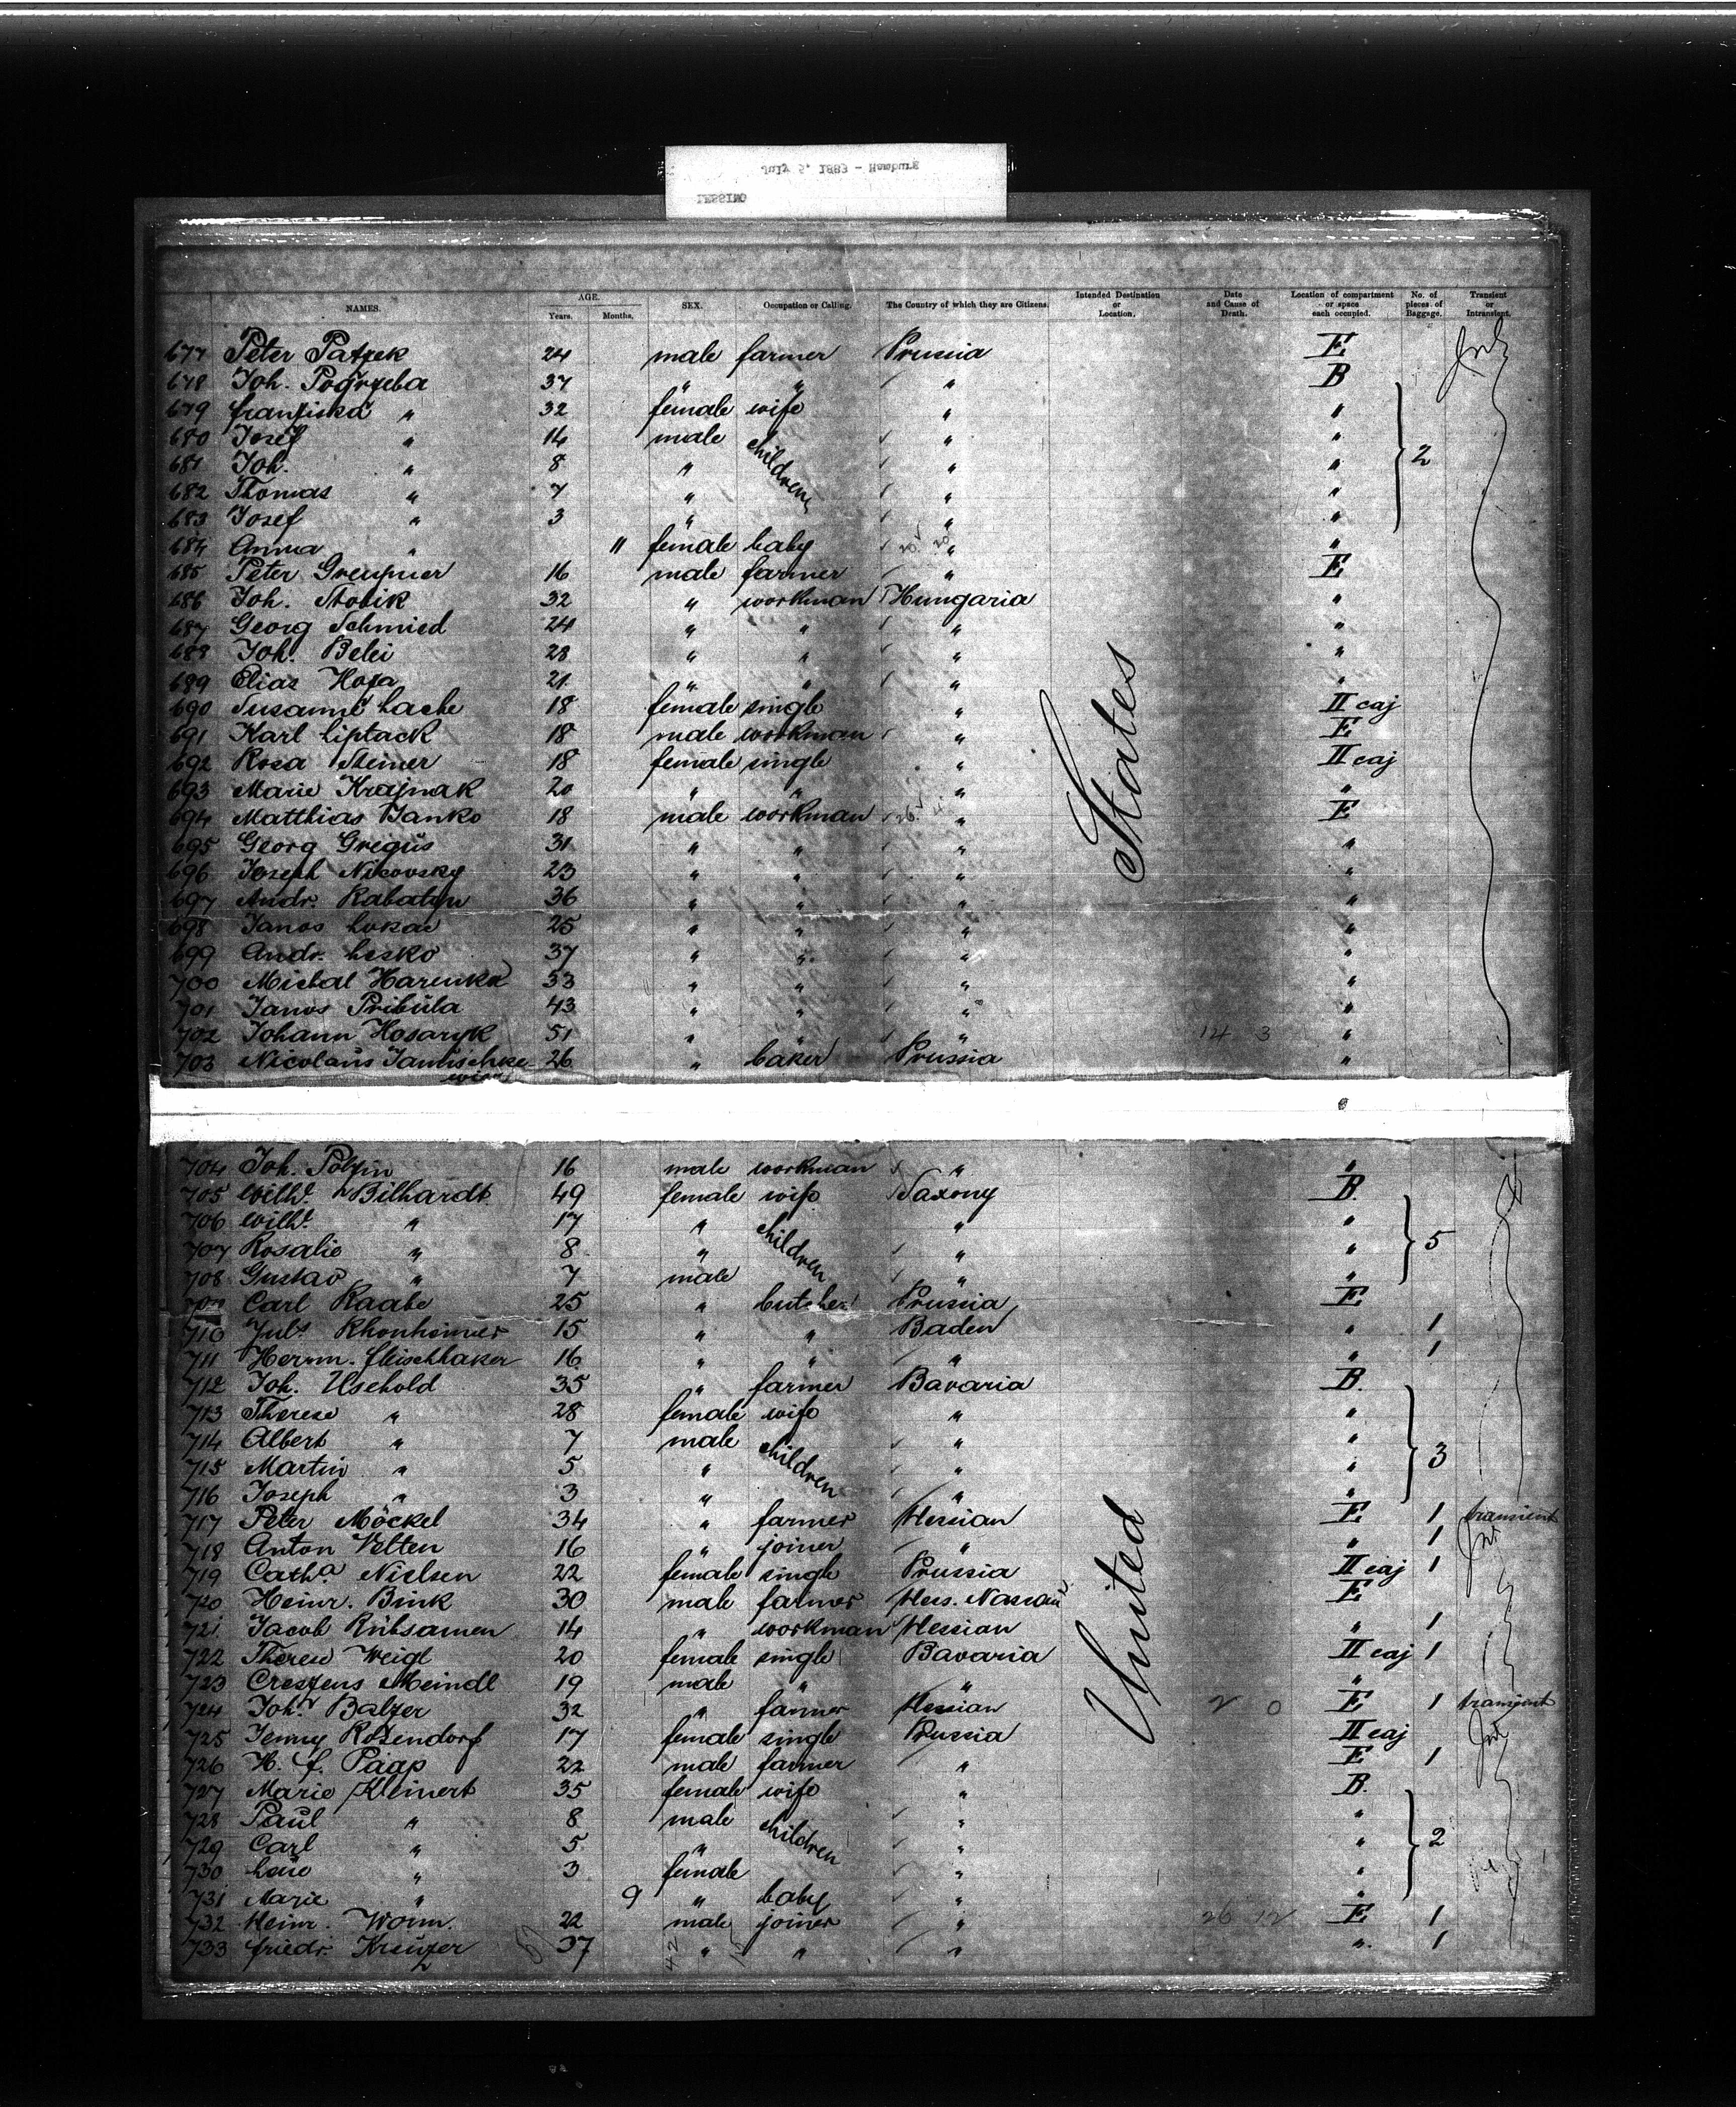 July 5, 1883 - Hamburg
LESSING
NAMES. AGE. Years. Months. SEX. Occupation or Calling. The Country of which they are Citizens. Intended Destination or Location. Date and Cause of Death. Location of compartment or space each occupied. No. of pieces of Baggage. Transient or Intransient.
677 Peter Patzek 24 male farmer Prussia E
678 Joh. Pogrzeba 37 " " " B
679 Franziska " 32 female wife " "
680 Josef " 14 male children " "
681 Joh. " 8 " " " 2
682 Thomas " 7 " " "
683 Josef " 3 " " "
684 Anna " 11 female baby " "
685 Peter 16 male farmer " E
686 Joh. Stobik 32 " workman Hungaria "
687 Georg Schmied 24 " " " "
688 Joh. Belei 28 " " " "
689 Elias Hoza 21 " " " "
690 Susanne Lache 18 female single " II caj
691 Karl Liptack 18 male workman " E
692 Rosa Steiner 18 female single " II caj
693 Marie Krajnak 20 " " " "
694 Matthias Janko 18 male workman " E
695 Georg Gregus 31 " " " "
696 Joseph Nicovsky 23 " " " "
697 Andr. Rabatyn 36 " " " "
698 Janos Lukac 25 " " " "
699 Andr. Lesko 37 " " " "
700 Michal Harenka 33 " " " "
701 Janos Pribula 43 " " " "
702 Johann Hosaryk 51 " " " 14 3 "
703 Nicolaus Jantischke 26 " baker Prussia "
States
704 Joh. Polzin 16 male workman " "
705 Wilh. Bilhardt 49 female wife Saxony B.
706 Wilh. " 17 " children " "
707 Rosalie " 8 " " " 5
708 Gustav " 7 male " "
Carl Raabe 25 " butcher Prussia E
710 Juls Rhonheimer 15 " " Baden " 1
711 Herrm. Fleischhaker 16 " " " " 1
712 Joh. Uschold 35 " farmer Bavaria B.
713 Therese " 28 female wife " "
714 Albert " 7 male children " "
715 Martin " 5 " " " 3
716 Joseph " 3 " " "
717 Peter Möckel 34 " farmer Hessian E 1 transient
718 Anton Velten 16 " joiner " " 1
719 Catha Nielsen 22 female single Prussia II caj 1
720 Heinr. Bink 30 male farmer Hess. Nassau E
721 Jacob Rübsamen 14 " workman Hessian " 1
722 Therese Weigl 20 female single Bavaria II caj 1
723 Creszens Meindl 19 male " " "
724 Joh. Balzer 32 " farmer Hessian 2 0 E 1 transient
725 Jenny Rosendorf 17 female single Prussia II caj
726 H. F. Paap 22 male farmer " E 1
727 Marie Kleinert 35 female wife " B.
728 Paul " 8 male children " "
729 Carl " 5 " " " 2
730 " 3 female " "
731 Marie " 9 " baby " "
732 Heinr. Worm. 22 male joiner " 26 12 E 1
733 Friedr. Kreuzer 37 " " " " 1
United